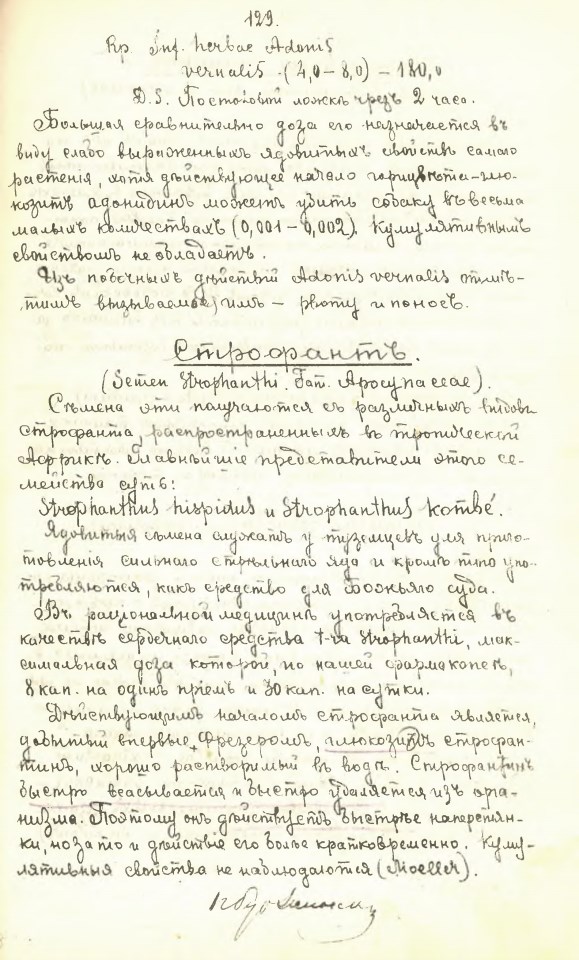 129.
Rp. Inf. herbae Adonis
vernalis (4,0 – 8,0) – 180,0
D.S. По столовой ложкѣ чрезъ 2 часа.
Большая сравнительно доза его назначается въ
виду слабо выраженныхъ ядовитыхъ свойствъ самаго
растенія, хотя дѣйствующее начало горицвѣта-глю-
козитъ адонидинъ можетъ убить собаку въ весьма
малыхъ количествахъ (0,001 – 0,002). Кумулятивнымъ
свойствомъ не обладаетъ.
Изъ побочныхъ дѣйствій Adonis vernalis отмѣ-
тимъ вызываемое, имъ – рвоту и поносъ.
Строфантъ.
(Semen Strophanthi. Fam. Apocynaceae).
Сѣмена эти получаются съ различныхъ видовъ
строфанта, распространенныхъ въ тропической
Африкѣ. Главнѣйшіе представители этого се-
мейства суть:
Strophanthus hispidus и Strophanthus kombé.
Ядовитыя сѣмена служатъ у туземцевъ для приго-
товленія сильнаго стрѣльнаго яда и кромѣ того упо-
требляются, какъ средство для Божьяго суда.
Въ раціональной медицинѣ употребляется въ
качествѣ сердечнаго средства t-ra Strophanthi, мак-
симальная доза которой, по нашей фармакопеѣ,
8 кап. на одинъ пріемъ и 30 кап. на сутки.
Дѣйствующимъ началомъ строфанта является,
добытый впервые Фрезеромъ, глюкозидъ строфан-
тинъ, хорошо растворимый въ водѣ. Строфантинъ
быстро всасывается и быстро удаляется изъ орга-
низма. Поэтому онъ дѣйствуетъ быстрѣе наперстян-
ки, но за то и дѣйствіе его болѣе кратковременно. Куму-
лятивныя свойства не наблюдаются (Moeller).